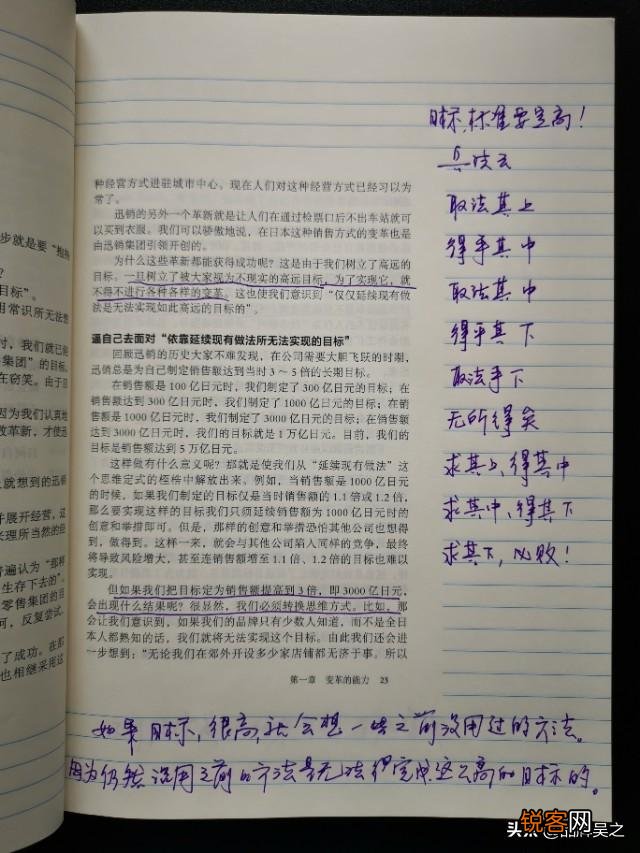 步就是要“抱持
？
目标”。
用常识所无法想
时，我们就已经
集团”的目标。
在窃笑。由于目
因为我们认真地
改革新，才使迅
就想到的迅顺
并展开经营，迅
米理所当然的经
普遍认为“那种
生存下去的”。
零售集团的目
何，反复尝试。
了成功。在那
也相继采用这
种经营方式进驻城市中心。现在人们对这种经营方式已经习以为
常了。
迅销的另外一个革新就是让人们在通过检票口后不出车站就可
以买到衣服。我们可以骄傲地说，在日本这种销售方式的变革也是
由迅销集团引领开创的。
为什么这些革新都能获得成功呢？这是由于我们树立了高远的
目标。一旦树立了被大家视为不现实的高远目标，为了实现它，就
不得不进行各种各样的变革。这也使我们意识到“仅仅延续现有做
法是无法实现如此高远的目标的”。
逼自己去面对“依靠延续现有做法所无法实现的目标”
回顾迅销的历史大家不难发现，在公司需要大胆飞跃的时期，
迅销总是为自己制定销售额达到当时3～5倍的长期目标。
在销售额是100亿日元时，我们制定了300亿日元的目标；在
销售额达到300亿日元时，我们制定了1000亿日元的目标；在销
售额是1000亿日元时，我们制定了3000亿日元的目标；在销售额
达到3000亿日元时，我们的目标就是1万亿日元。目前，我们的
目标是销售额达到5万亿日元。
这样做有什么意义呢？那就是使我们从“延续现有做法”这
个思维定式的桎梏中解放出来。例如，当销售额是1000亿日元
的时候，如果我们制定的目标仅是当时销售额的1.1倍或1.2倍，
那么要实现这样的目标我们只须延续销售额为1000亿日元时的
创意和举措即可。但是，那样的创意和举措恐怕其他公司也想得
到，做得到。这样一来，就会与其他公司陷入同样的竞争，最终
将导致风险增大，甚至连销售额增至1.1倍、1.2倍的目标也难以
实现。
但如果我们把目标定为销售额提高到3倍，即3000亿日元，
会出现什么结果呢？很显然，我们必须转换思维方式。比如，那
会让我们意识到，如果我们的品牌只有少数人知道，而不是全日
本人都熟知的话，我们就将无法实现这个目标。由此我们还会进
一步想到：“无论我们在郊外开设多少家店铺都无济于事。所以
第一章 变革的能力 23
目标，标准要定高！
兵法云
取法其上
得乎其中
取法其中
得乎其下
取法乎下
无所得矣
求其上，得其中
求其中，得其下
求其下，必败！
如果目标，很高，就会想一些之前没用过的方法。
因为仍然沿用之前的方法是无法得完成这么高的目标的。
头条@品牌吴之
锐客网